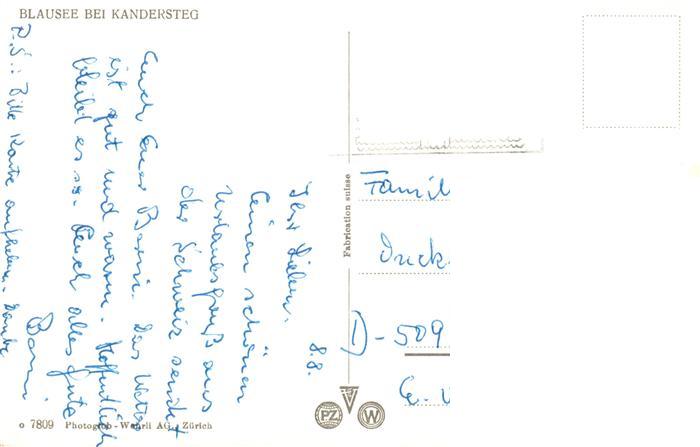 BLAUSEE BEI KANDERSTEG
8.8.
Ihr Lieben.
Einen schönen
Urlaubsgruß aus
der Schweiz sendet
Euch Euer Bonni. Das Wetter
ist gut und warm. Hoffentlich
bleibt es so. Euch alles Gute
Bonni
P.S.: Bitte Karte aufheben. Danke
Fabrication suisse
Famil
Druck
D-509
PZ W
o 7809 Photoglob-Wehrli AG, Zürich